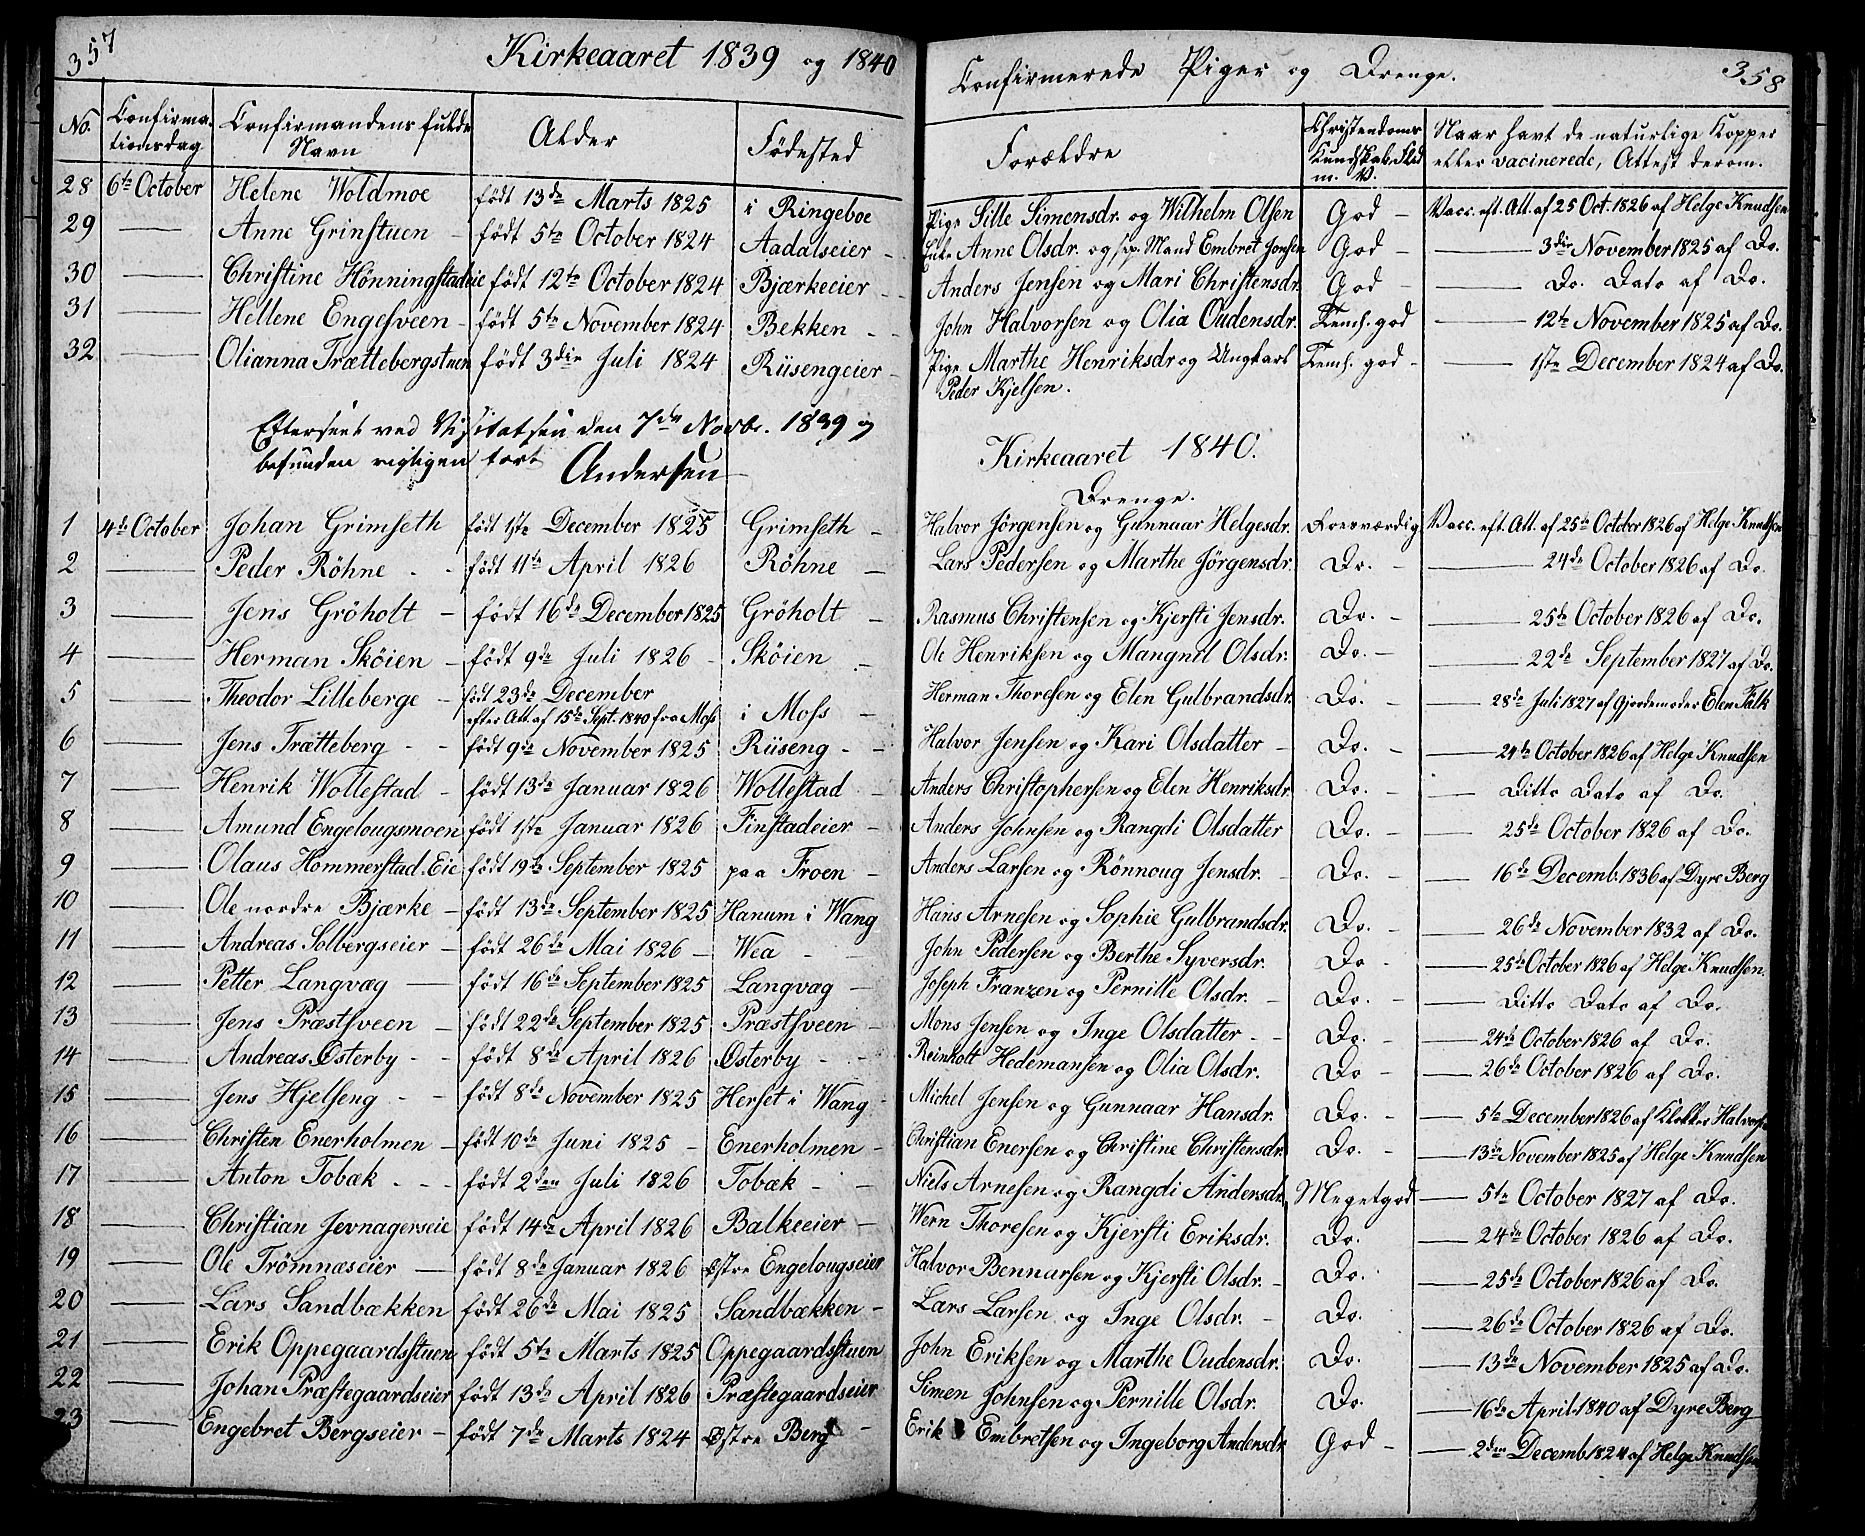 357
Kirkeaaret 1839 og 1840
No. Confirmationsdag Confirmandens fulde Navn Alder Fødested
28 6te October Helene Woldmoe født 13de Marts 1825 i Ringeboe
29 Anne Grinstuen - født 5te October 1824 Aadalseier -
30 Christine Hønningstadeie født 12te October 1824 Bjærkeeier -
31 Hellene Engesveen - født 5te November 1824 Bekken -
32 Olianna Trættebergstuen født 3die Juli 1824 Riisengeier -
Efterseet ved Visitatsen den 7de Novbr. 1839 og
befunden rigtigen fort Andersen
1 4de October Johan Grimseth født 1ste December 1825 Grimseth -
2 Peder Röhne - - født 11te April 1826 Röhne -
3 Jens Gröholt - født 16de December 1825 Gröholt -
4 Herman Sköien - født 9de Juli 1826 - Sköien -
5 Theodor Lilleberge - født 23de December
efter Att. af 15de Sept. 1840 fra Moss i Moss -
6 Jens Trætteberg - - født 9de November 1825 Riiseng - -
7 Henrik Wollestad - født 13de Januar 1826 Wollestad -
8 Amund Engelougsmoen født 1ste Januar 1826 Finstadeier -
9 Olaus Hommerstad.Eie født 19de September 1825 paa Froen -
10 Ole nordre Bjærke - født 13de September 1825 Hanum i Wang
11 Andreas Solbergseier - født 26de Mai 1826 - Wea - -
12 Petter Langvæg - født 16de September 1825 Langvæg -
13 Jens Præstsveen - født 22de September 1825 Præstsveen -
14 Andreas Østerby - - født 8de April 1826 Østerby - -
15 Jens Hjelseng - - født 8de November 1825 Herset i Wang -
16 Christen Enerholmen - født 10de Juni 1825 - Enerholmen -
17 Anton Tobæk - - - født 2den Juli 1826 Tobæk - -
18 Christian Jevnagerseie født 14de April 1826 Balkeeier -
19 Ole Trömnæseier - født 8de Januar 1826 østre Engelougseier
20 Lars Sandbækken født 26de Mai 1825 Sandbækken -
21 Erik Oppegaardsstuen født 5te Marts 1825 Oppegaardsstuen
22 Johan Præstegaardseier født 13de April 1826 Præstegaardseier
23 Engebret Bergseier - født 7de Marts 1824 Østre Berg -
358
Confirmerede Piger og Drenge.
Forældre Christendoms Kundskab. Flid m. V. Naar havt de naturlige Kopper eller vacinerede, Attest derom.
Pige Sille Simensdr. og Wilhelm Olsen God - Vacc. eft. Att. af 25 Oct. 1826 af Helge Knudsen
Enke Anne Olsdr. og Mand Embret Jonsen God - 3die November 1825 af Do.
Anders Jensen og Mari Christensdr. God - Do. Dato af Do.
John Halvorsen og Olia Oudensdr. Temh. god 12te November 1825 af Do.
Pige Marthe Henriksdr og Ungkarl Temh. god - 1ste December 1824 af Do.
Peder Kjelsen.
Kirkeaaret 1840.
Drenge.
Halvor Jörgensen og Gunnaar Helgesdr. Roesværdig Vacc. eft. Att. af 25de October 1826 af Helge Knudsen
Lars Pedersen og Marthe Jörgensdr. Do. - 24de October 1826 af Do.
Rasmus Christensen og Kjersti Jensdr. Do. - 25de October 1826 af Do.
Ole Henriksen og Mangnil Olsdr. Do. - 22de September 1827 af Do.
Herman Thoresen og Elen Gulbrandsdr. Do. - 28de Juli 1827 af Gjordemoder Elen Falk
Halvor Jensen og Kari Olsdatter - Do. - 24de October 1826 af Helge Knudsen
Anders Christophersen og Elen Henriksdr Do. - Ditto Dato af Do.
Anders Johnsen og Rangdi Olsdatter Do. - 25de October 1826 af Do.
Anders Larsen og Rönnoug Jensdr. - Do. - 16de Decemb. 1836 af Dyre Berg
Hans Arnesen og Sophie Gulbrandsdr. Do. - 26de November 1832 af Do.
John Pedersen og Berthe Syversdr. Do - 25de October 1826 af Helge Knudsen.
Joseph Franzen og Pernille Olsdr. - Do. - Ditto Dato af Do.
Mons Jensen og Inge Olsdatter - - Do. - 24de October 1826 af Do.
Reinholt Hedemansen og Olia Olsdr. Do - 26de October 1826 af Do.
Michel Jensen og Gunnaar Hansdr. Do. - 5te December 1826 af Klokker Halvorsen
Christian Enersen og Christine Christensdr. Do. - 13de November 1825 af Helge Knudsen
Niels Arnesen og Rangdi Andensdr. Megetgod 5te October 1827 af Do.
Wern Thoresen og Kjersti Eriksdr. Do. 24de October 1826 af Do.
Halvor Bennarsen og Kjersti Olsdr. - Do. 25de October 1826 af Do.
Lars Larsen og Inge Olsdr. - Do. 26de October 1826 af Do.
John Eriksen og Marthe Oudensdr. Do. 13de November 1825 af Do.
Simen Johnsen og Pernille Olsdr. Do. 16de April 1840 af Dyre Berg
Erik Embretsen og Ingeborg Andensdr. God - 2den Decemb. 1824 af Helge Knudsen